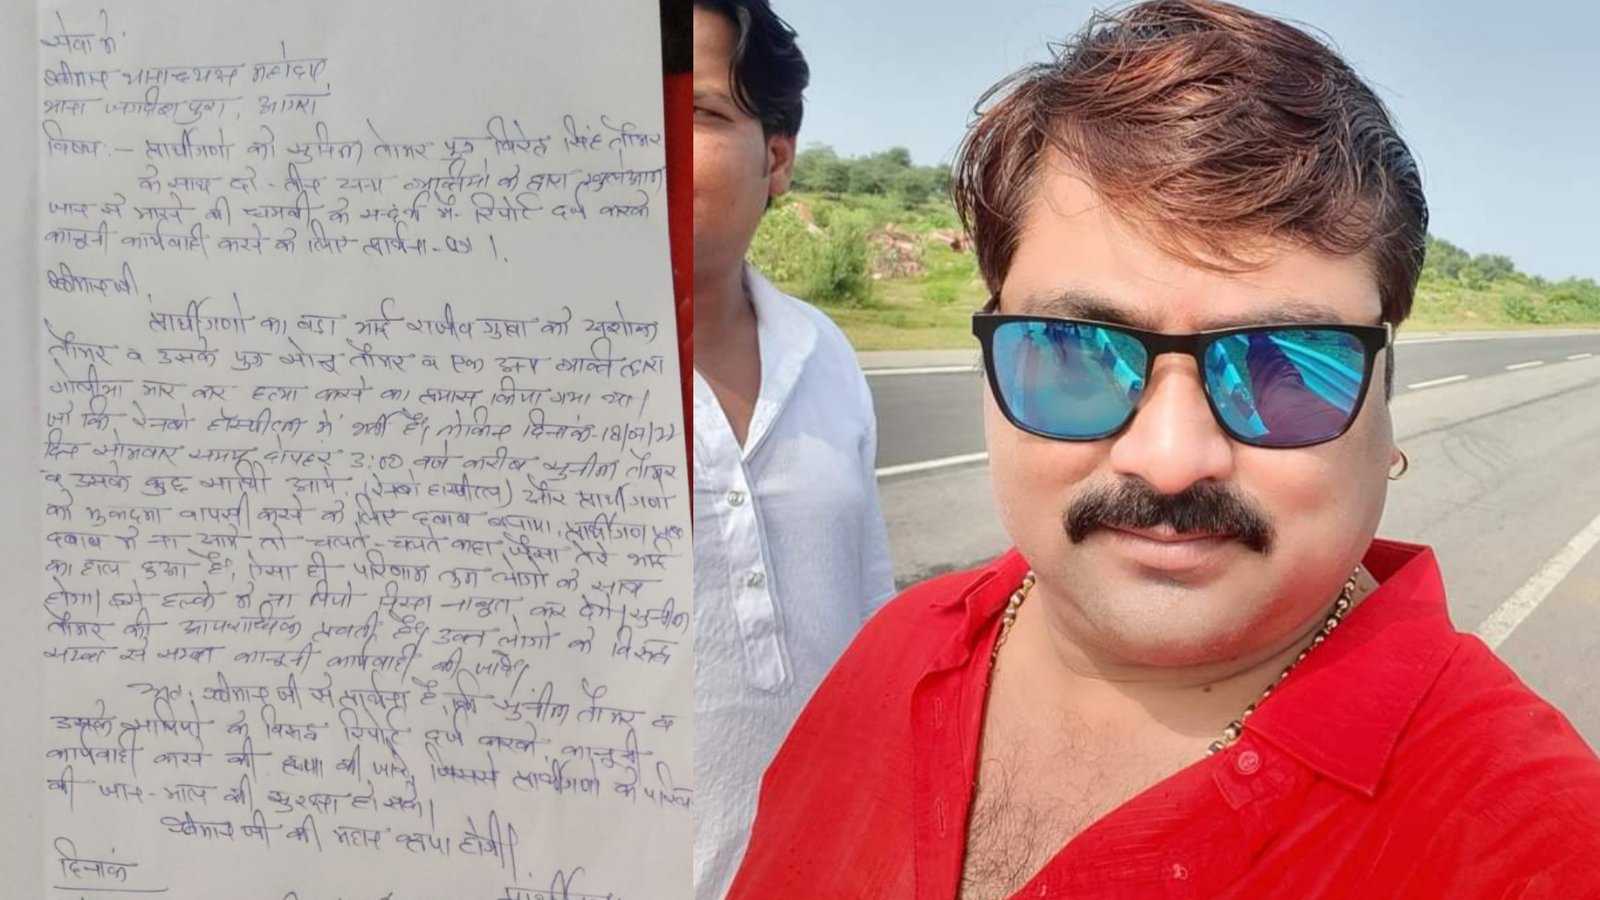 सेवा में
श्रीमान थानाध्यक्ष महोदय,
थाना जगदीश पुरा, आगरा
विषय:- प्रार्थीगणों को सुनील तोमर पुत्र सिंह तौमर
के साथ दो-तीन अन्य व्यक्तियों के द्वारा खुलेआम
जान से मारने की धमकी के सन्दर्भ में रिपोर्ट दर्ज करके
कानूनी कार्यवाही करने के लिए प्रार्थना-पत्र।
श्रीमान जी,
प्रार्थीगणों का बड़ा भाई राजीव गुप्ता को अशोक
तौमर व उसके पुत्र सोनू तौमर व एक अन्य व्यक्ति द्वारा
गोलीया मार कर हत्या करने का प्रयास किया गया था।
जो कि रेनबो हॉस्पीटल में भर्ती है, लेकिन दिनांक-18/07/22
दिन सोमवार समय दोपहर 3:00 बजे करीब सुनील तौमर
व उसके कुछ साथी आये, (रेनबो हास्पीटल) और प्रार्थीगणों
को मुकदमा वापसी करने के लिए दबाब बनाया, प्रार्थीगण
दबाब में ना आये तो चलते-चलते कहा जैसा तेरे भाई
का हाल हुआ है, ऐसा ही परिणाम तुम लोगों के साथ
होगा। इसे हल्के में ना लियो किस्सा नाबूत कर देगें। सुनील
तौमर की आपराधिक प्रवती है, उक्त लोगों के विरूद्ध
सख्त से सख्त कानूनी कार्यवाही की जाये,
अतः श्रीमान जी से प्रार्थना है, कि सुनील तौमर व
उसके साथियों के विरूद्ध रिपोर्ट दर्ज करके, कानूनी
कार्यवाही करने की कृपा की जाये, जिससे प्रार्थीगणों के
की जान-माल की सुरक्षा हो सके।
श्रीमान जी की महान कृपा होगी।
दिनांक